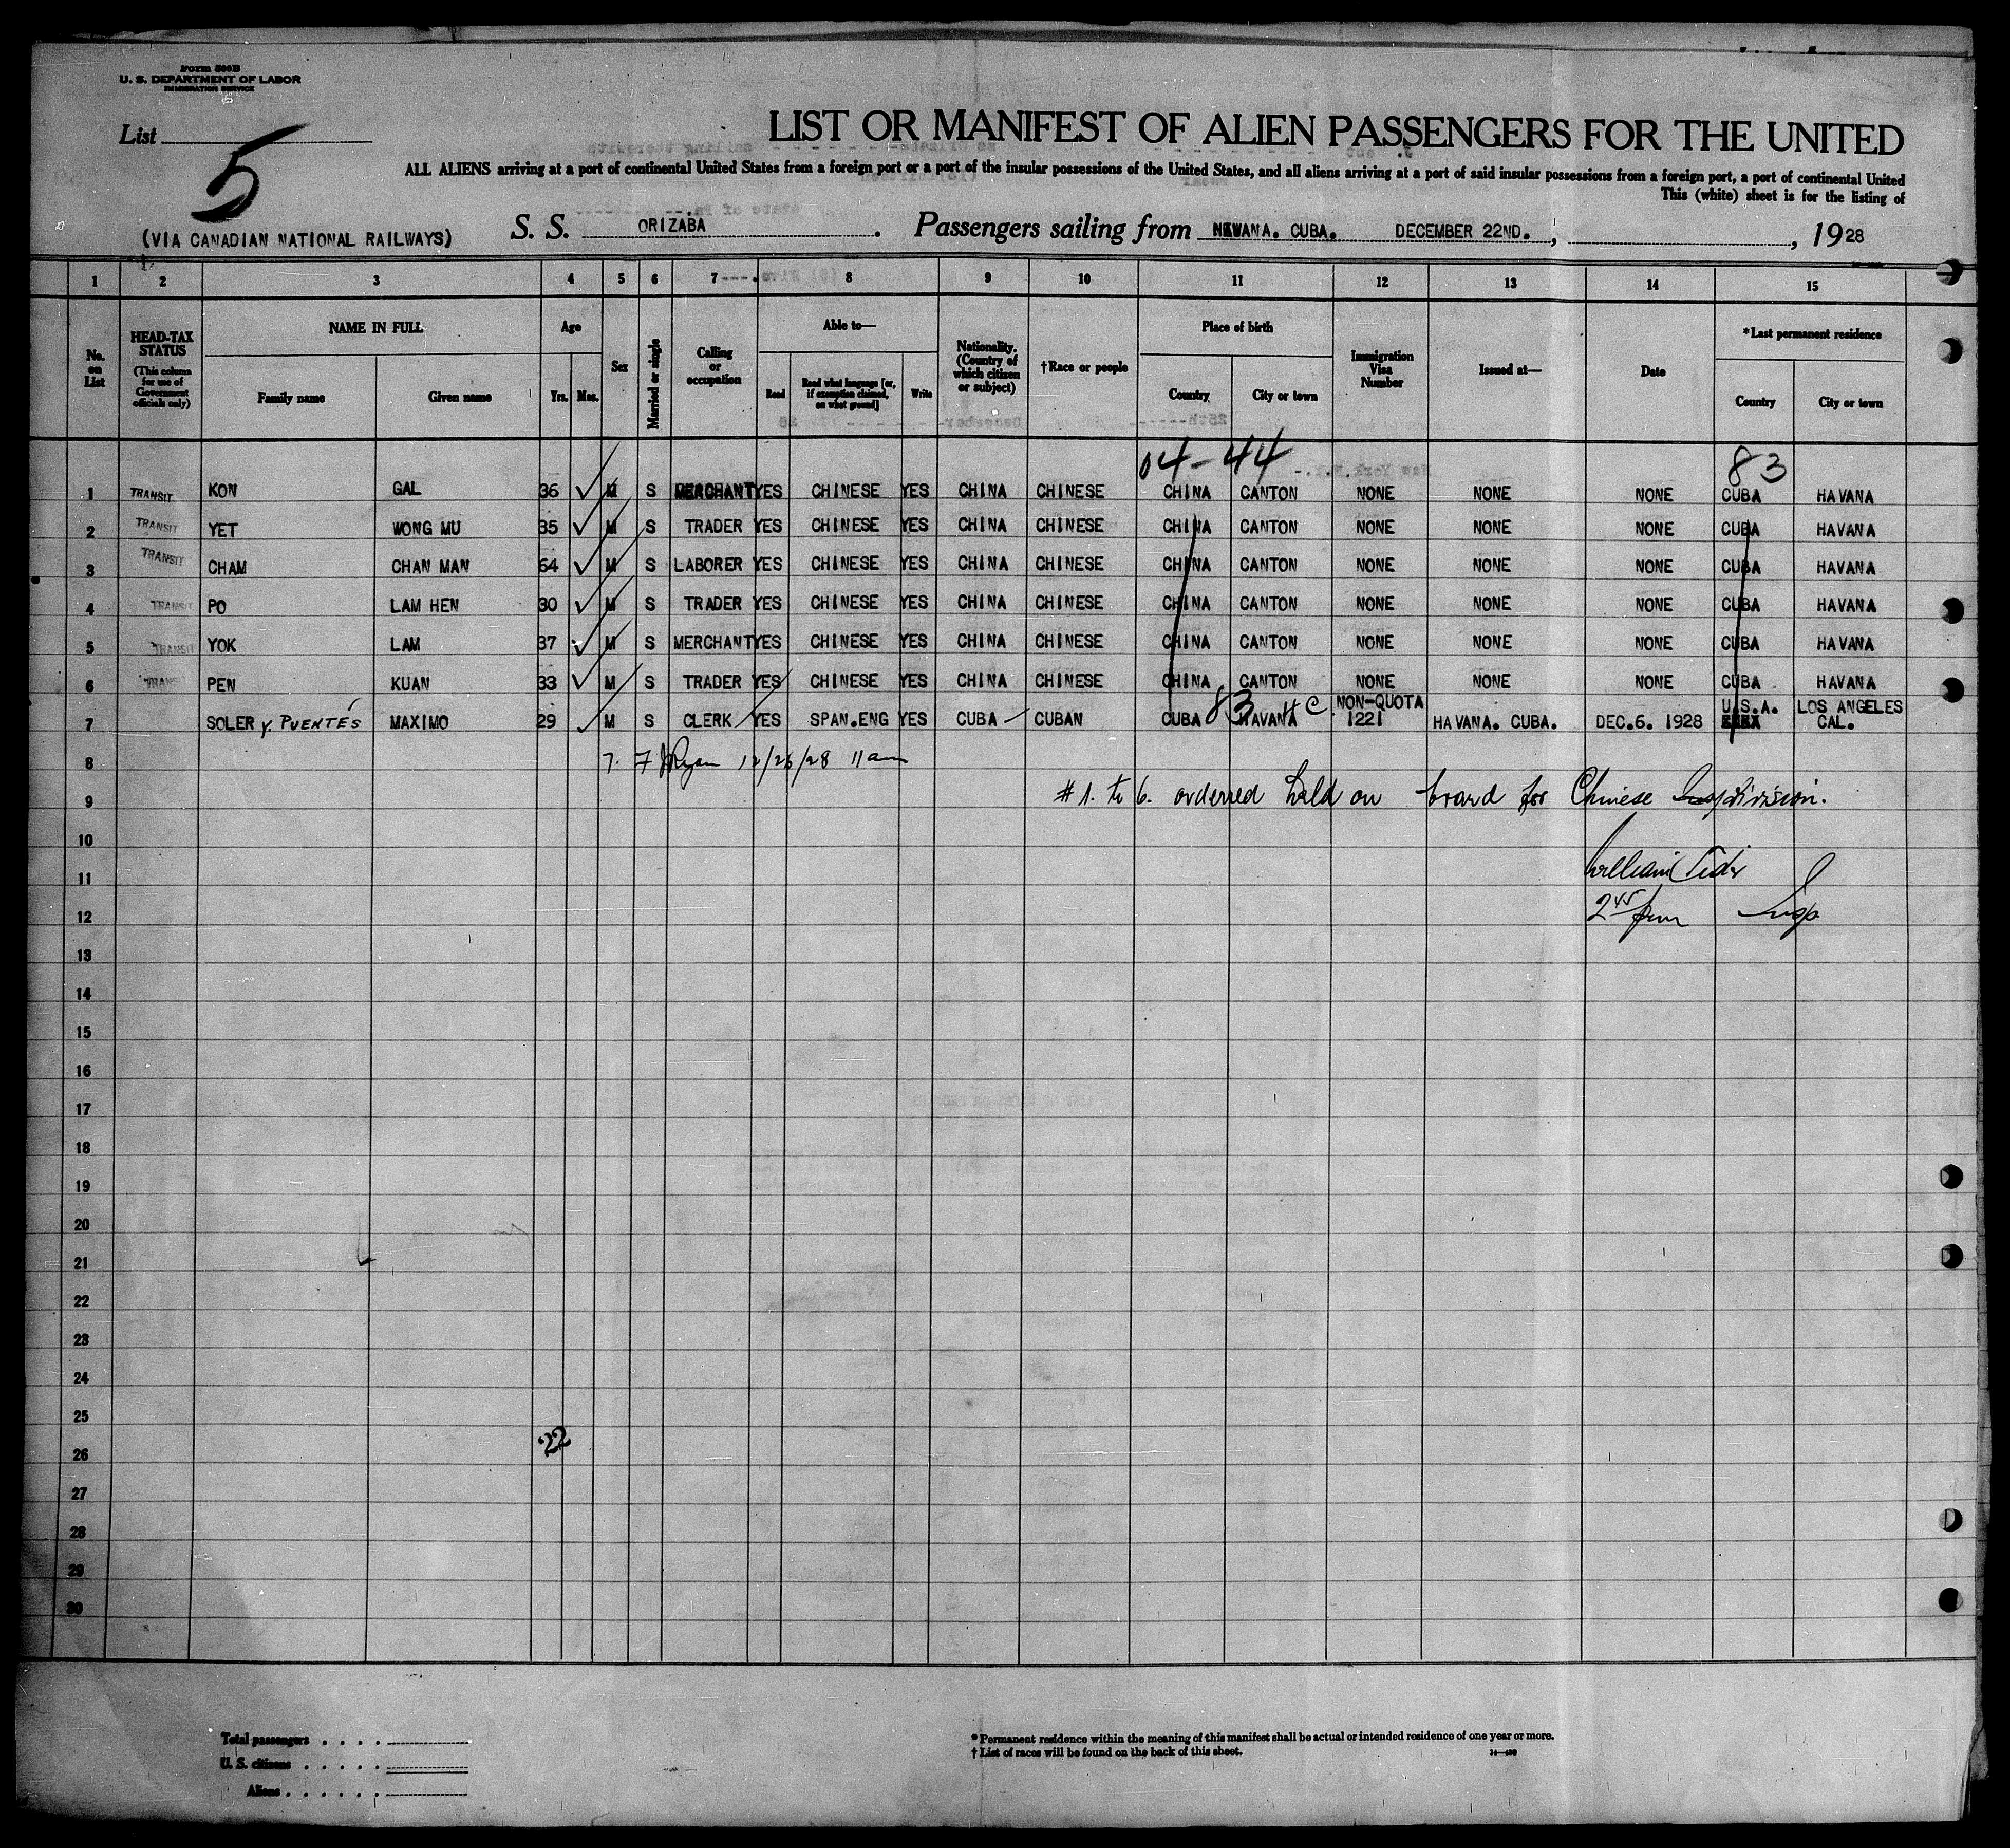 Form 500B
U. S. DEPARTMENT OF LABOR
IMMIGRATION SERVICE
List
5
LIST OR MANIFEST OF ALIEN PASSENGERS FOR THE UNITED
ALL ALIENS arriving at a port of continental United States from a foreign port or a port of the insular possessions of the United States, and all aliens arriving at a port of said insular possessions from a foreign port, a port of continental United
This (white) sheet is for the listing of
(VIA CANADIAN NATIONAL RAILWAYS) S. S. ORIZABA. Passengers sailing from HAVANA. CUBA. DECEMBER 22ND. , , 1928
1 2 3 4 5 6 7 8 9 10 11 12 13 14 15
No. on List
HEAD-TAX STATUS (This column for use of Government officials only)
NAME IN FULL
Family name Given name
Age
Yrs. Mos.
Sex
Married or single
Calling or occupation
Able to—
Read Read what language [or, if exemption claimed, on what ground] Write
Nationality. (Country of which citizen or subject)
†Race or people
Place of birth
Country City or town
Immigration Visa Number
Issued at—
Date
*Last permanent residence
Country City or town
04-44 83
1 TRANSIT KON GAL 36 M S MERCHANT YES CHINESE YES CHINA CHINESE CHINA CANTON NONE NONE NONE CUBA HAVANA
2 TRANSIT YET WONG MU 35 M S TRADER YES CHINESE YES CHINA CHINESE CHINA CANTON NONE NONE NONE CUBA HAVANA
3 TRANSIT CHAM CHAN MAN 64 M S LABORER YES CHINESE YES CHINA CHINESE CHINA CANTON NONE NONE NONE CUBA HAVANA
4 TRANSIT PO LAM HEN 30 M S TRADER YES CHINESE YES CHINA CHINESE CHINA CANTON NONE NONE NONE CUBA HAVANA
5 TRANSIT YOK LAM 37 M S MERCHANT YES CHINESE YES CHINA CHINESE CHINA CANTON NONE NONE NONE CUBA HAVANA
6 TRANSIT PEN KUAN 33 M S TRADER YES CHINESE YES CHINA CHINESE CHINA CANTON NONE NONE NONE CUBA HAVANA
83 H C NON-QUOTA U.S.A. LOS ANGELES
7 SOLER y PUENTÉS MAXIMO 29 M S CLERK YES SPAN.ENG YES CUBA CUBAN CUBA HAVANA 1221 HAVANA. CUBA. DEC.6. 1928 CAL.
8 7. F J Ryan 12/26/28 11 am
9 #1. to 6. ordered held on board for Chinese division.
10
11 William
12 2 45 pm Insp
13
14
15
16
17
18
19
20
21
22
23
24
25
26 22
27
28
29
30
Total passengers . . . .
U. S. citizens . . . . .
Aliens . . . . . .
* Permanent residence within the meaning of this manifest shall be actual or intended residence of one year or more.
† List of races will be found on the back of this sheet.